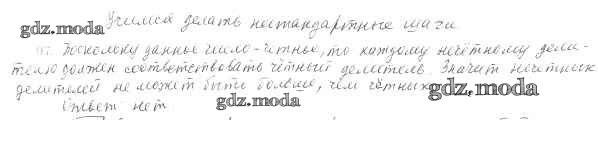 Учимся делать нестандартные шаги.
gdz.moda
Поскольку данное число - чётное, то каждому нечётному дели-
телю должен соответствовать чётный делитель. Значит нечётных
делителей не может быть больше, чем чётных
gdz.moda
Ответ: нет.
gdz.moda